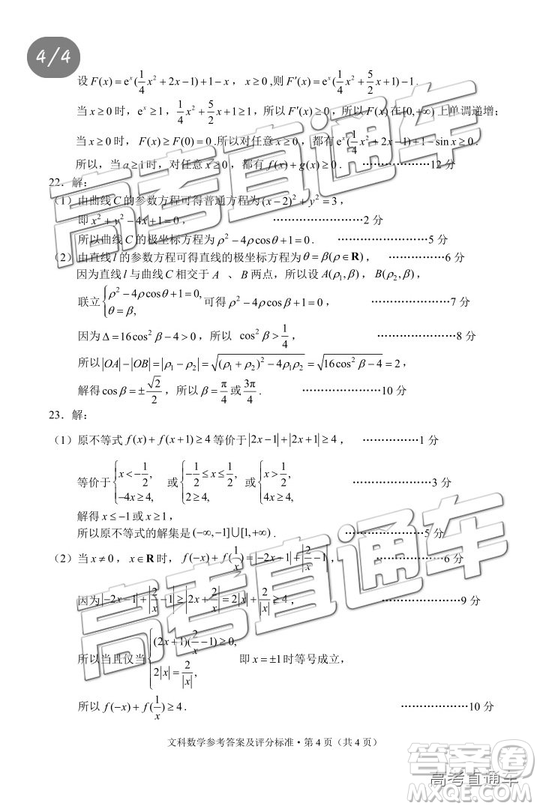 4/4
设 F(x)=eˣ(1/4 x²+2x-1)+1-x，x≥0,则 F′(x)=eˣ(1/4 x²+5/2 x+1)-1.
当 x≥0 时，eˣ≥1，1/4 x²+5/2 x+1≥1，所以 F′(x)≥0，所以 F(x) 在[0,+∞)上单调递增;
当 x≥0 时，F(x)≥F(0)=0.所以对任意 x≥0，都有 eˣ(1/4 x²+2x-1)+1-sin x≥0.
所以，当 a≥1时，对任意 x≥0，都有 f(x)+g(x)≥0. ………………12 分
22．解：
（1）由曲线 C 的参数方程可得普通方程为(x-2)²+y²=3，
即 x²+y²-4x+1=0， ………………2 分
所以曲线 C 的极坐标方程为 ρ²-4ρcosθ+1=0. ………………5 分
（2）由直线 l 的参数方程可得直线的极坐标方程为 θ=β(ρ∈R)， ………………6 分
因为直线 l 与曲线 C 相交于 A 、 B 两点，所以设 A(ρ₁,β)，B(ρ₂,β)，
联立{ρ²-4ρcosθ+1=0, θ=β, 可得 ρ²-4ρcosβ+1=0， ………………7 分
因为 Δ=16cos²β-4>0，所以 cos²β>1/4 ………………8 分
所以|OA|-|OB|=|ρ₁-ρ₂|=√((ρ₁+ρ₂)²-4ρ₁ρ₂)=√(16cos²β-4)=2，
解得 cosβ=±√2/2，所以 β=π/4 或 3π/4. ………………10 分
23．解：
（1）原不等式 f(x)+f(x+1)≥4 等价于|2x-1|+|2x+1|≥4， ………………1 分
等价于{x<-1/2, -4x≥4, 或{-1/2≤x≤1/2, 2≥4, 或{x>1/2, 4x≥4, ………………3 分
解得 x≤-1 或 x≥1，
所以原不等式的解集是(-∞,-1]∪[1,+∞). ………………5 分
（2）当 x≠0，x∈R 时，f(-x)+f(1/x)=|-2x-1|+|2/x-1|，
因为|-2x-1|+|2/x-1|≥|2x+2/x|=2|x|+2/|x|≥4， ………………9 分
所以当且仅当{(2x+1)(2/x-1)≥0, 2|x|=2/|x|, 即 x=±1 时等号成立，
所以 f(-x)+f(1/x)≥4. ………………10 分
文科数学参考答案及评分标准·第 4 页（共 4 页）
高考直通车
高考直通车
高考直通车
高考直通车
答案圈
MXQE.COM